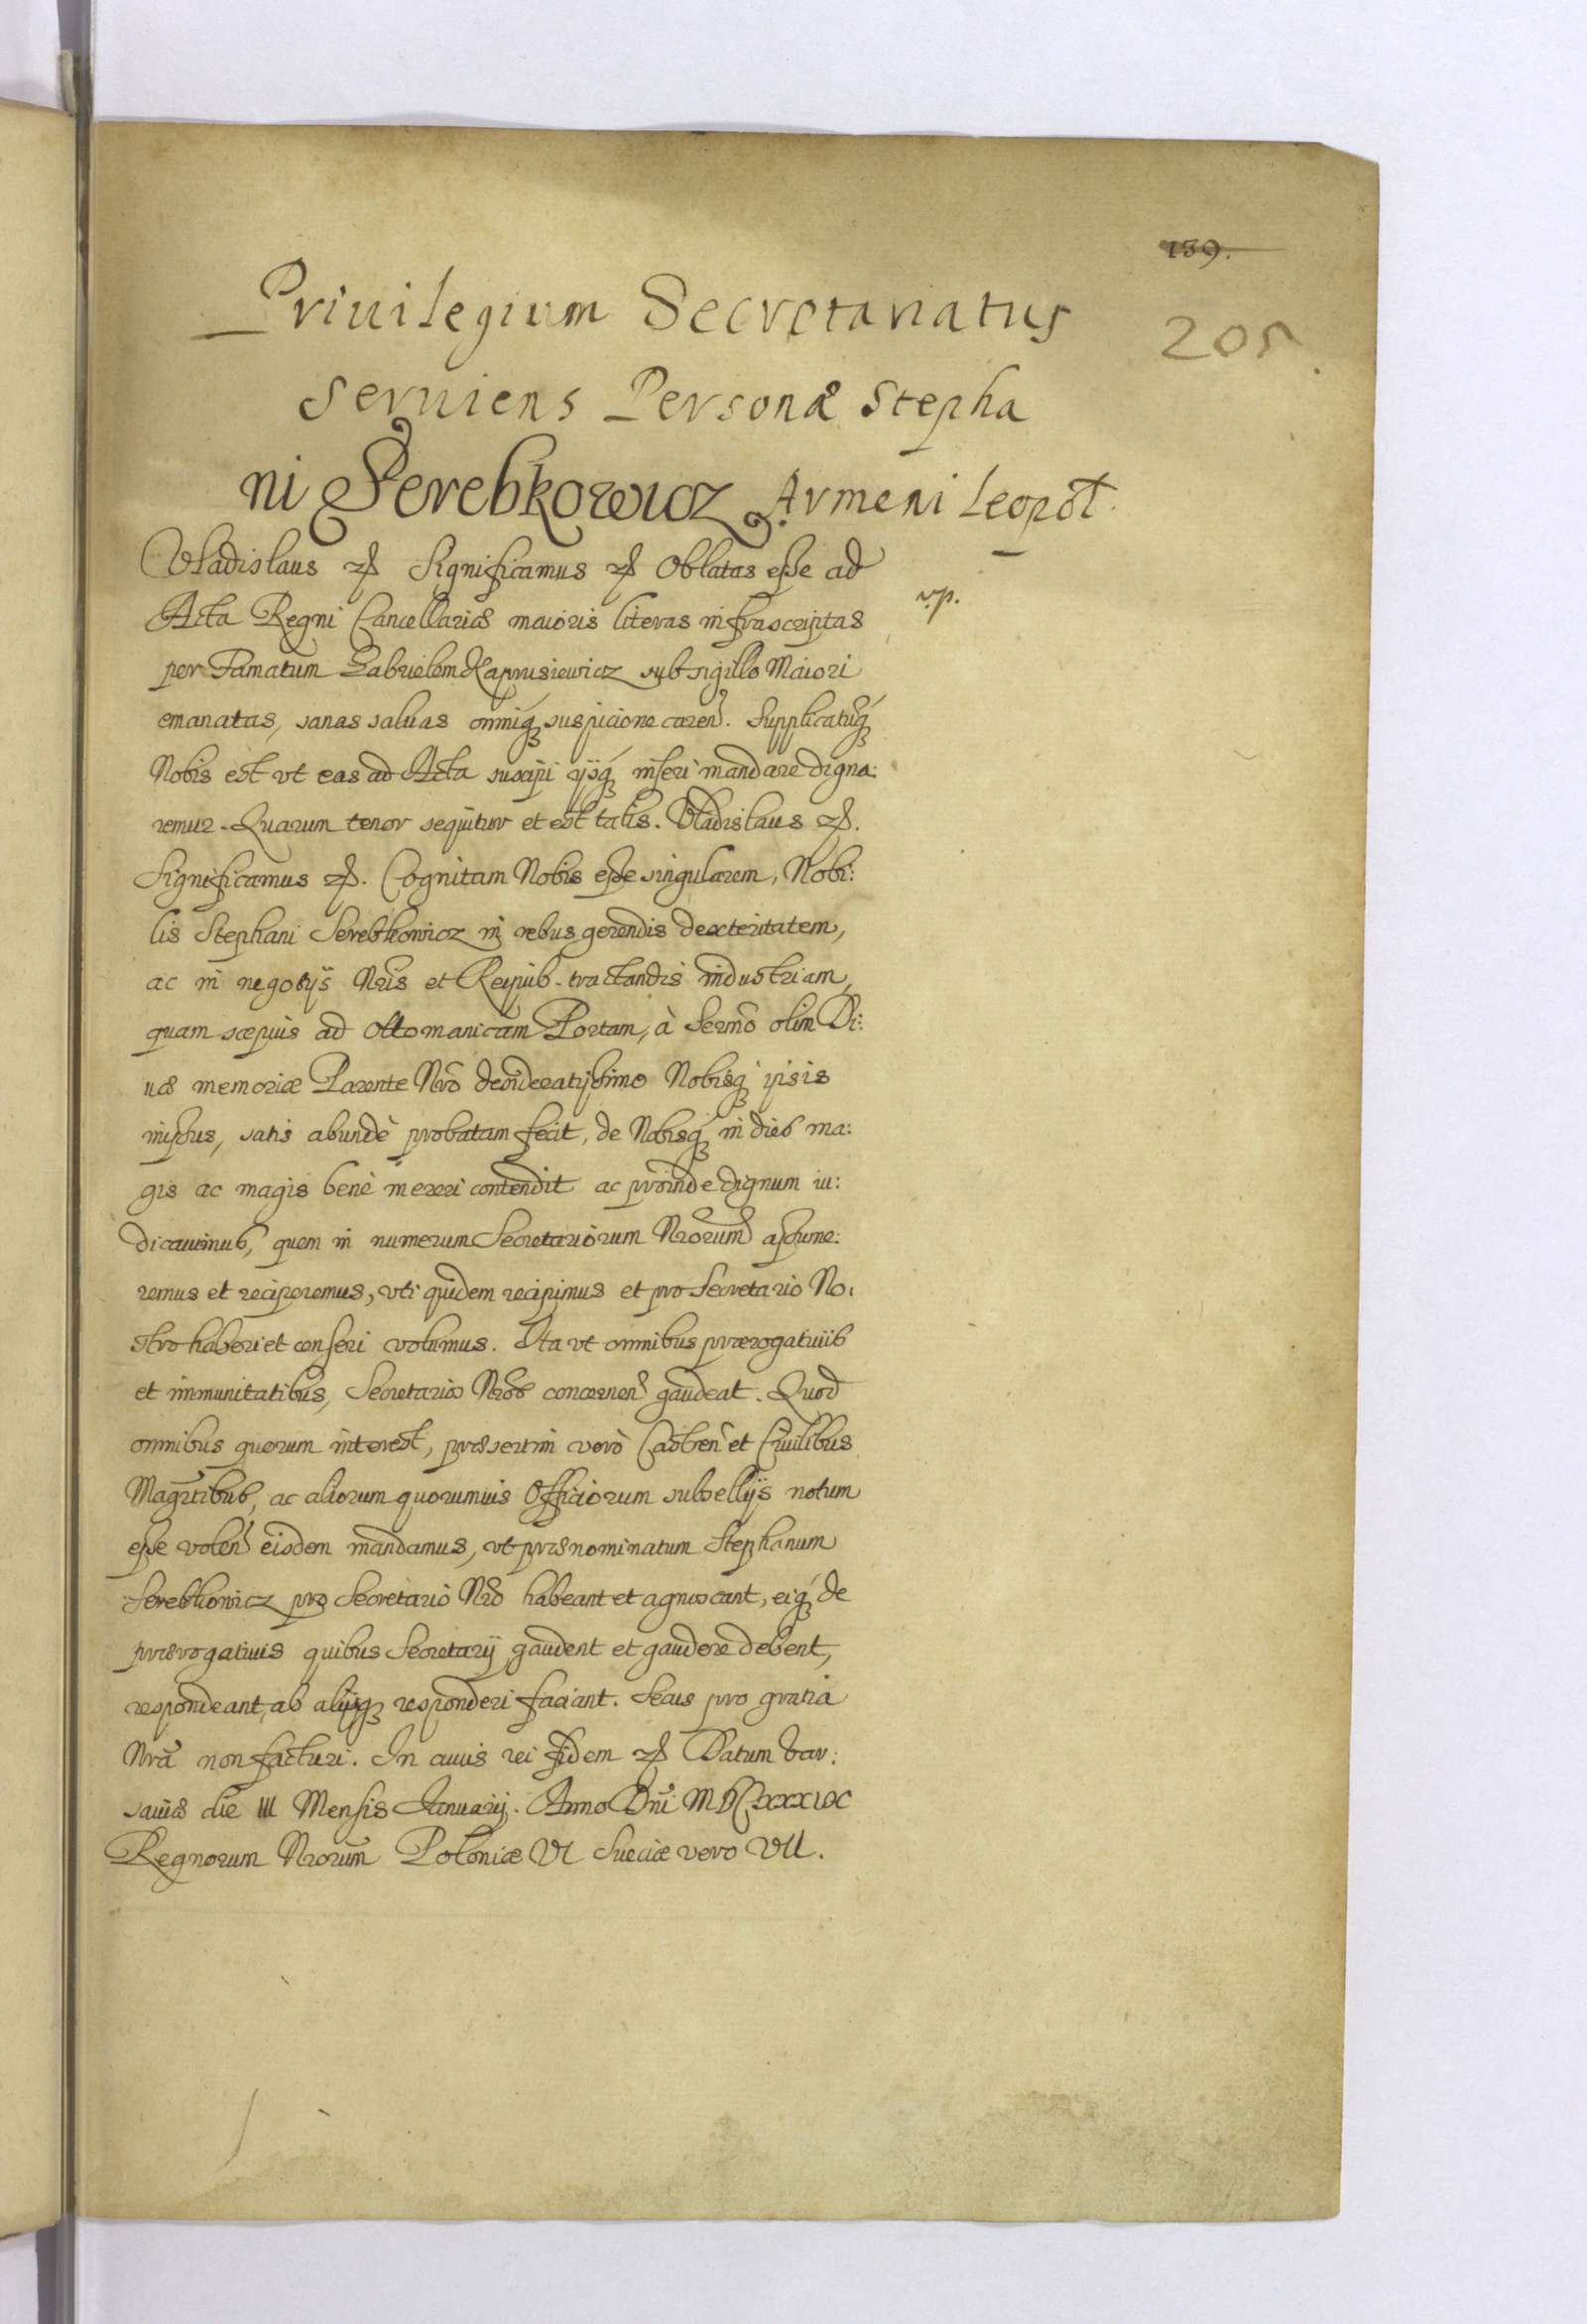 159.
205.
Priuilegium Secretariatus
seruiens Personæ Stepha
ni Serebkowicz Armeni Leopol̃.
Vladislaus etc Significamus etc Oblatas esse ad
Acta Regni Cancellariæ maioris literas infrascriptas
per Famatum Gabrielem Kaprusiewicz sub sigillo Maiori
emanatas, sanas saluas omniq́ue suspicione caren̄. Supplicatúq́ue
Nobis est vt eas ad Acta suscipi ijsq́ue inseri mandare digna:
remur. Quarum tenor sequitur et est talis. Vladislaus etc.
Significamus etc. Cognitam Nobis esse singularem, Nobi:
lis Stephani Serebkowicz in rebus gerendis dexteritatem,
ac in negotijs Nr̃is et Reipub. tractandis industriam,
quam sæpius ad Ottomanicam Portam, à Sermo olim Di:
uæ memoriæ Parente Nr̃o desideratissimo Nobisq́ue ipsis
missus, satis abundè probatam fecit, de Nobisq́ue in dies ma:
gis ac magis benè mereri contendit ac proinde dignum iu:
dicauimus, quem in numerum Secretariorum Nr̃orum assume:
remus et reciperemus, vti quidem recipimus et pro Secretario No:
stro haberi et censeri volumus. Ita vt omnibus prærogatiuis
et immunitatibus, Secretarios Nr̃os concernen̄ gaudeat. Quod
omnibus quorum interest, præsertim verò Castren̄ et Ciuilibus
Magr̃tibus, ac aliorum quorumuis Officiorum subsellijs notum
esse volen̄ eisdem mandamus, vt prænominatum Stephanum
Serebkowicz pro Secretario Nr̃o habeant et agnoscant, eiq́ue de
prærogatiuis quibus Secretarij gaudent et gaudere debent,
respondeant, ab alijsq́ue responderi faciant. Secus pro gratia
Nr̃a non facturi. In cuius rei fidem etc Datum Var:
sauiæ die III Mensis Ianuarij. Anno Dn̄i MDCXXXIX
Regnorum Nr̃orum Poloniæ VI Sueciæ vero VII.